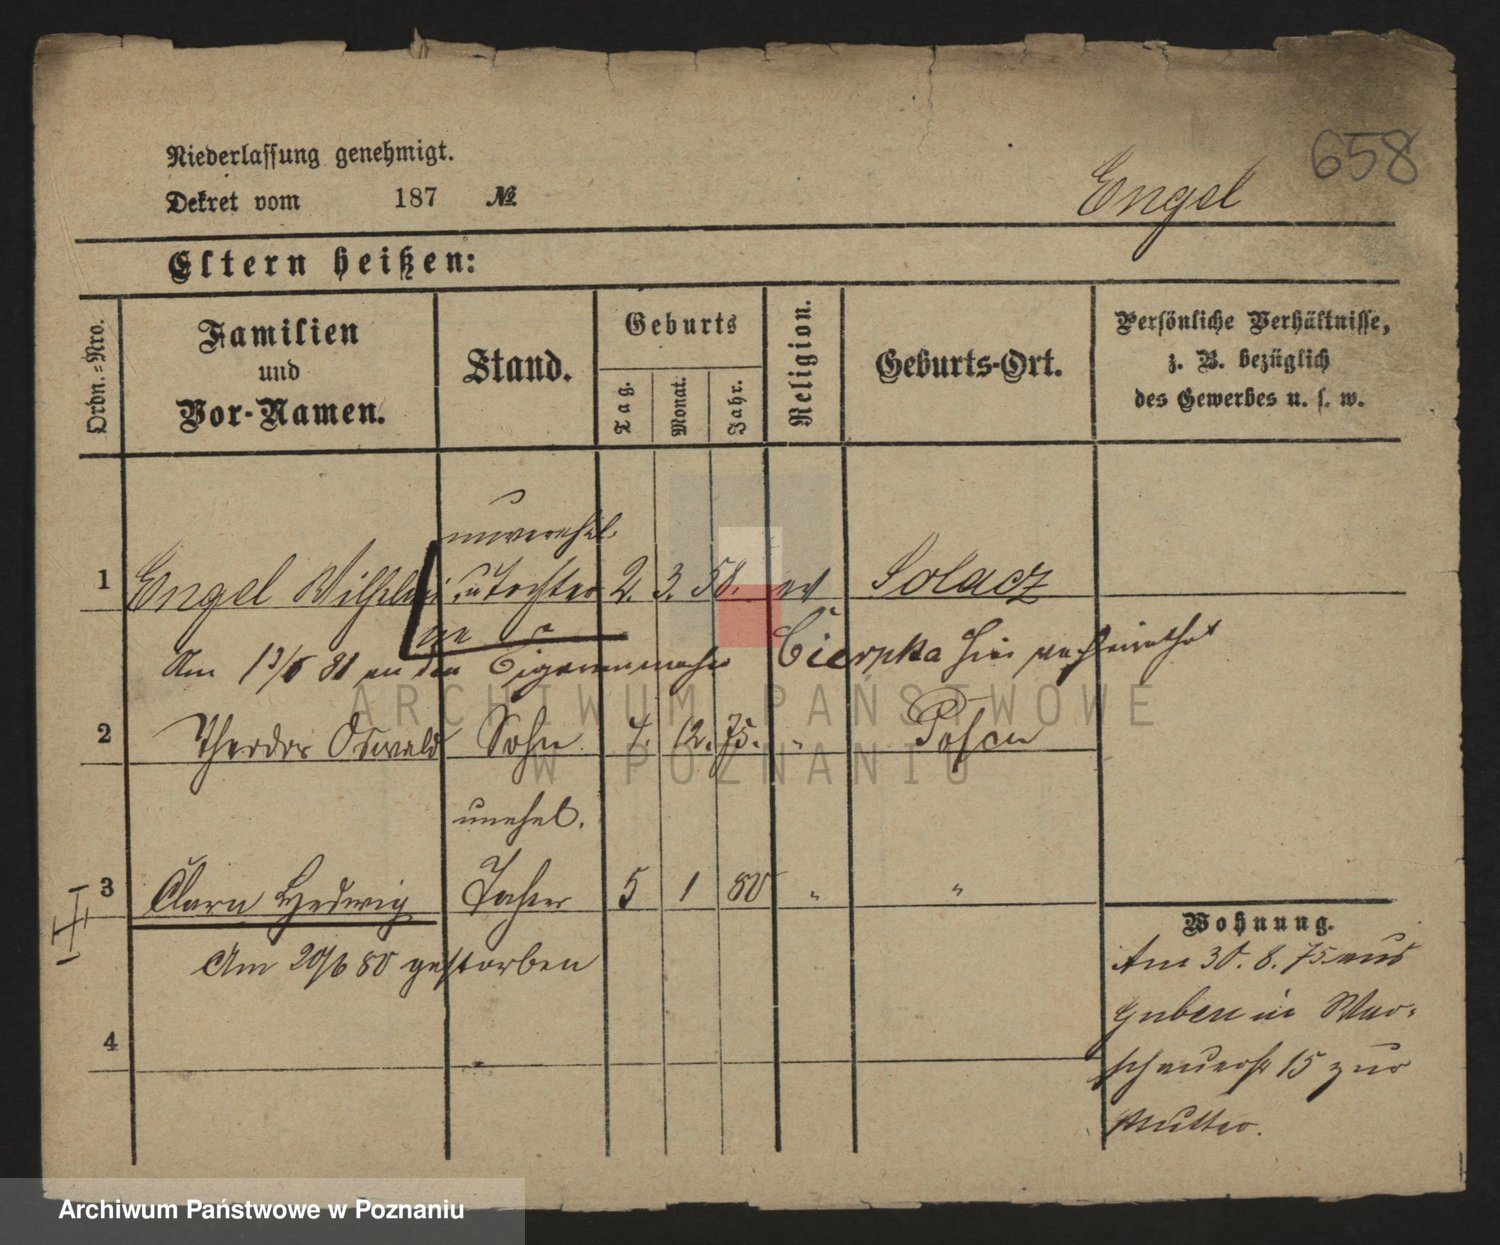 658
Engel
Niederlassung genehmigt.
Dekret vom 187 №
Eltern heißen:
Ordn.=Nro.
Familien
und
Vor-Namen.
Stand.
Geburts
Tag.
Monat.
Jahr.
Religion.
Geburts-Ort.
Persönliche Verhältnisse,
z. B. bezüglich
des Gewerbes u. s. w.
unverehel.
1 Engel Wilhelmi Tochter 2. 3. 58. ev Solacz
ne
Am 13/6 81 an den Cierpka hier verheirathet
2 Theodor Oswald Sohn 7. 12. 75. " Posen
unehel.
3 Clara Hedwig Tochter 5 1 80 " "
Am 20/6 80 gestorben
4
Wohnung.
Am 30. 8. 75 aus
Guben in War-
schauerstr 15 zur
Mutter.
ARCHIWUM PAŃSTWOWE
W POZNANIU
Archiwum Państwowe w Poznaniu